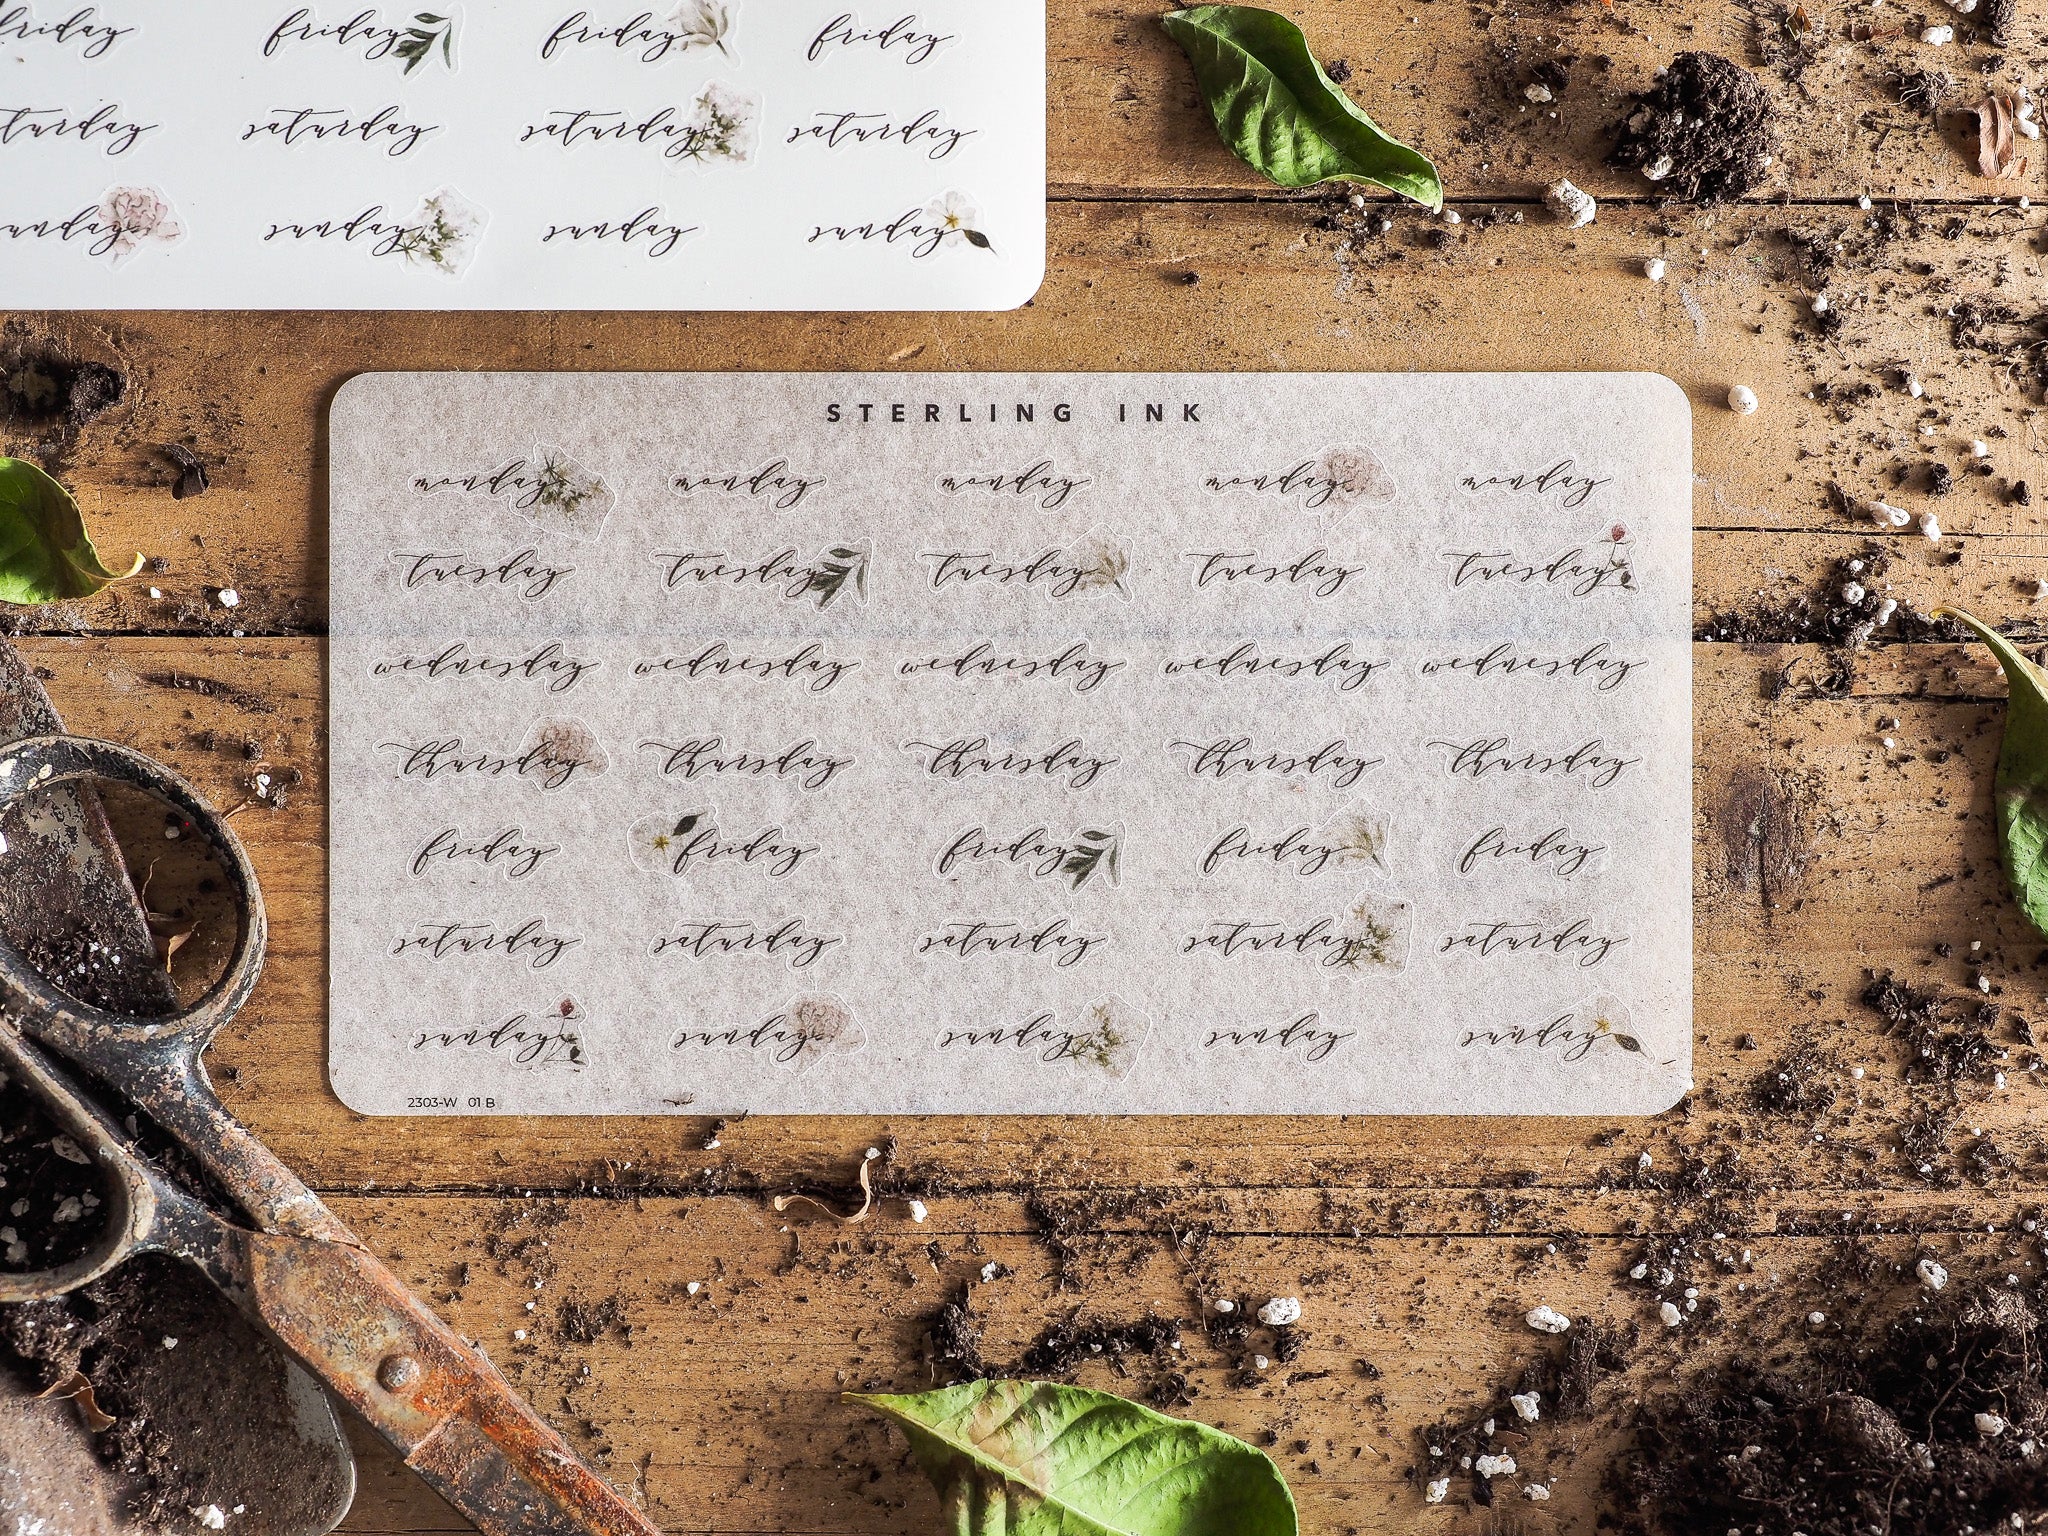 friday friday friday friday
saturday saturday saturday
sunday sunday sunday
STERLING INK
monday monday monday monday monday
tuesday tuesday tuesday tuesday tuesday
wednesday wednesday wednesday wednesday wednesday
thursday thursday thursday thursday thursday
friday friday friday friday friday
saturday saturday saturday saturday saturday
sunday sunday sunday sunday sunday
2303-W 01 B